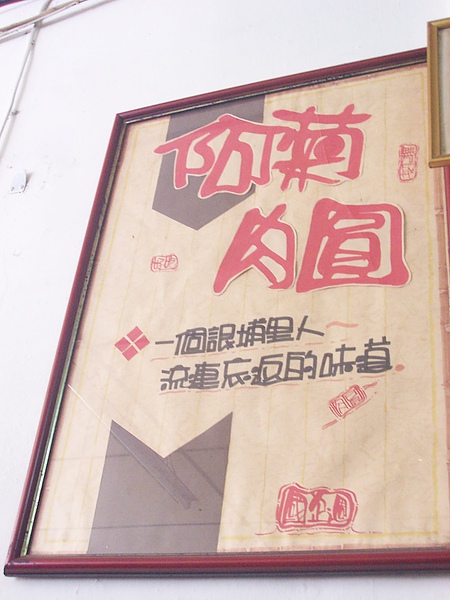 阿菊
肉圓
一個讓埔里人
流連忘返的味道